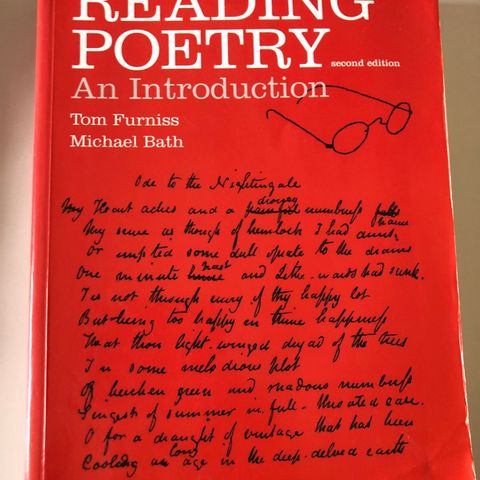 READING
POETRY second edition
An Introduction
Tom Furniss
Michael Bath
Ode to the Nightingale
drowsy
My Heart aches and a painful numbness falls
pains
My sense as though of hemlock I had drunk,
Or emptied some dull opiate to the drains
past
One minute hence and Lethe-wards had sunk.
Tis not through envy of thy happy lot
But being too happy in thine happiness
That thou light-winged dryad of the trees
In some melodious plot
Of beechen green and shadows numberless
Singest of summer in full-throated ease.
O for a draught of vintage that has been
long
Cooling an age in the deep-delved earth